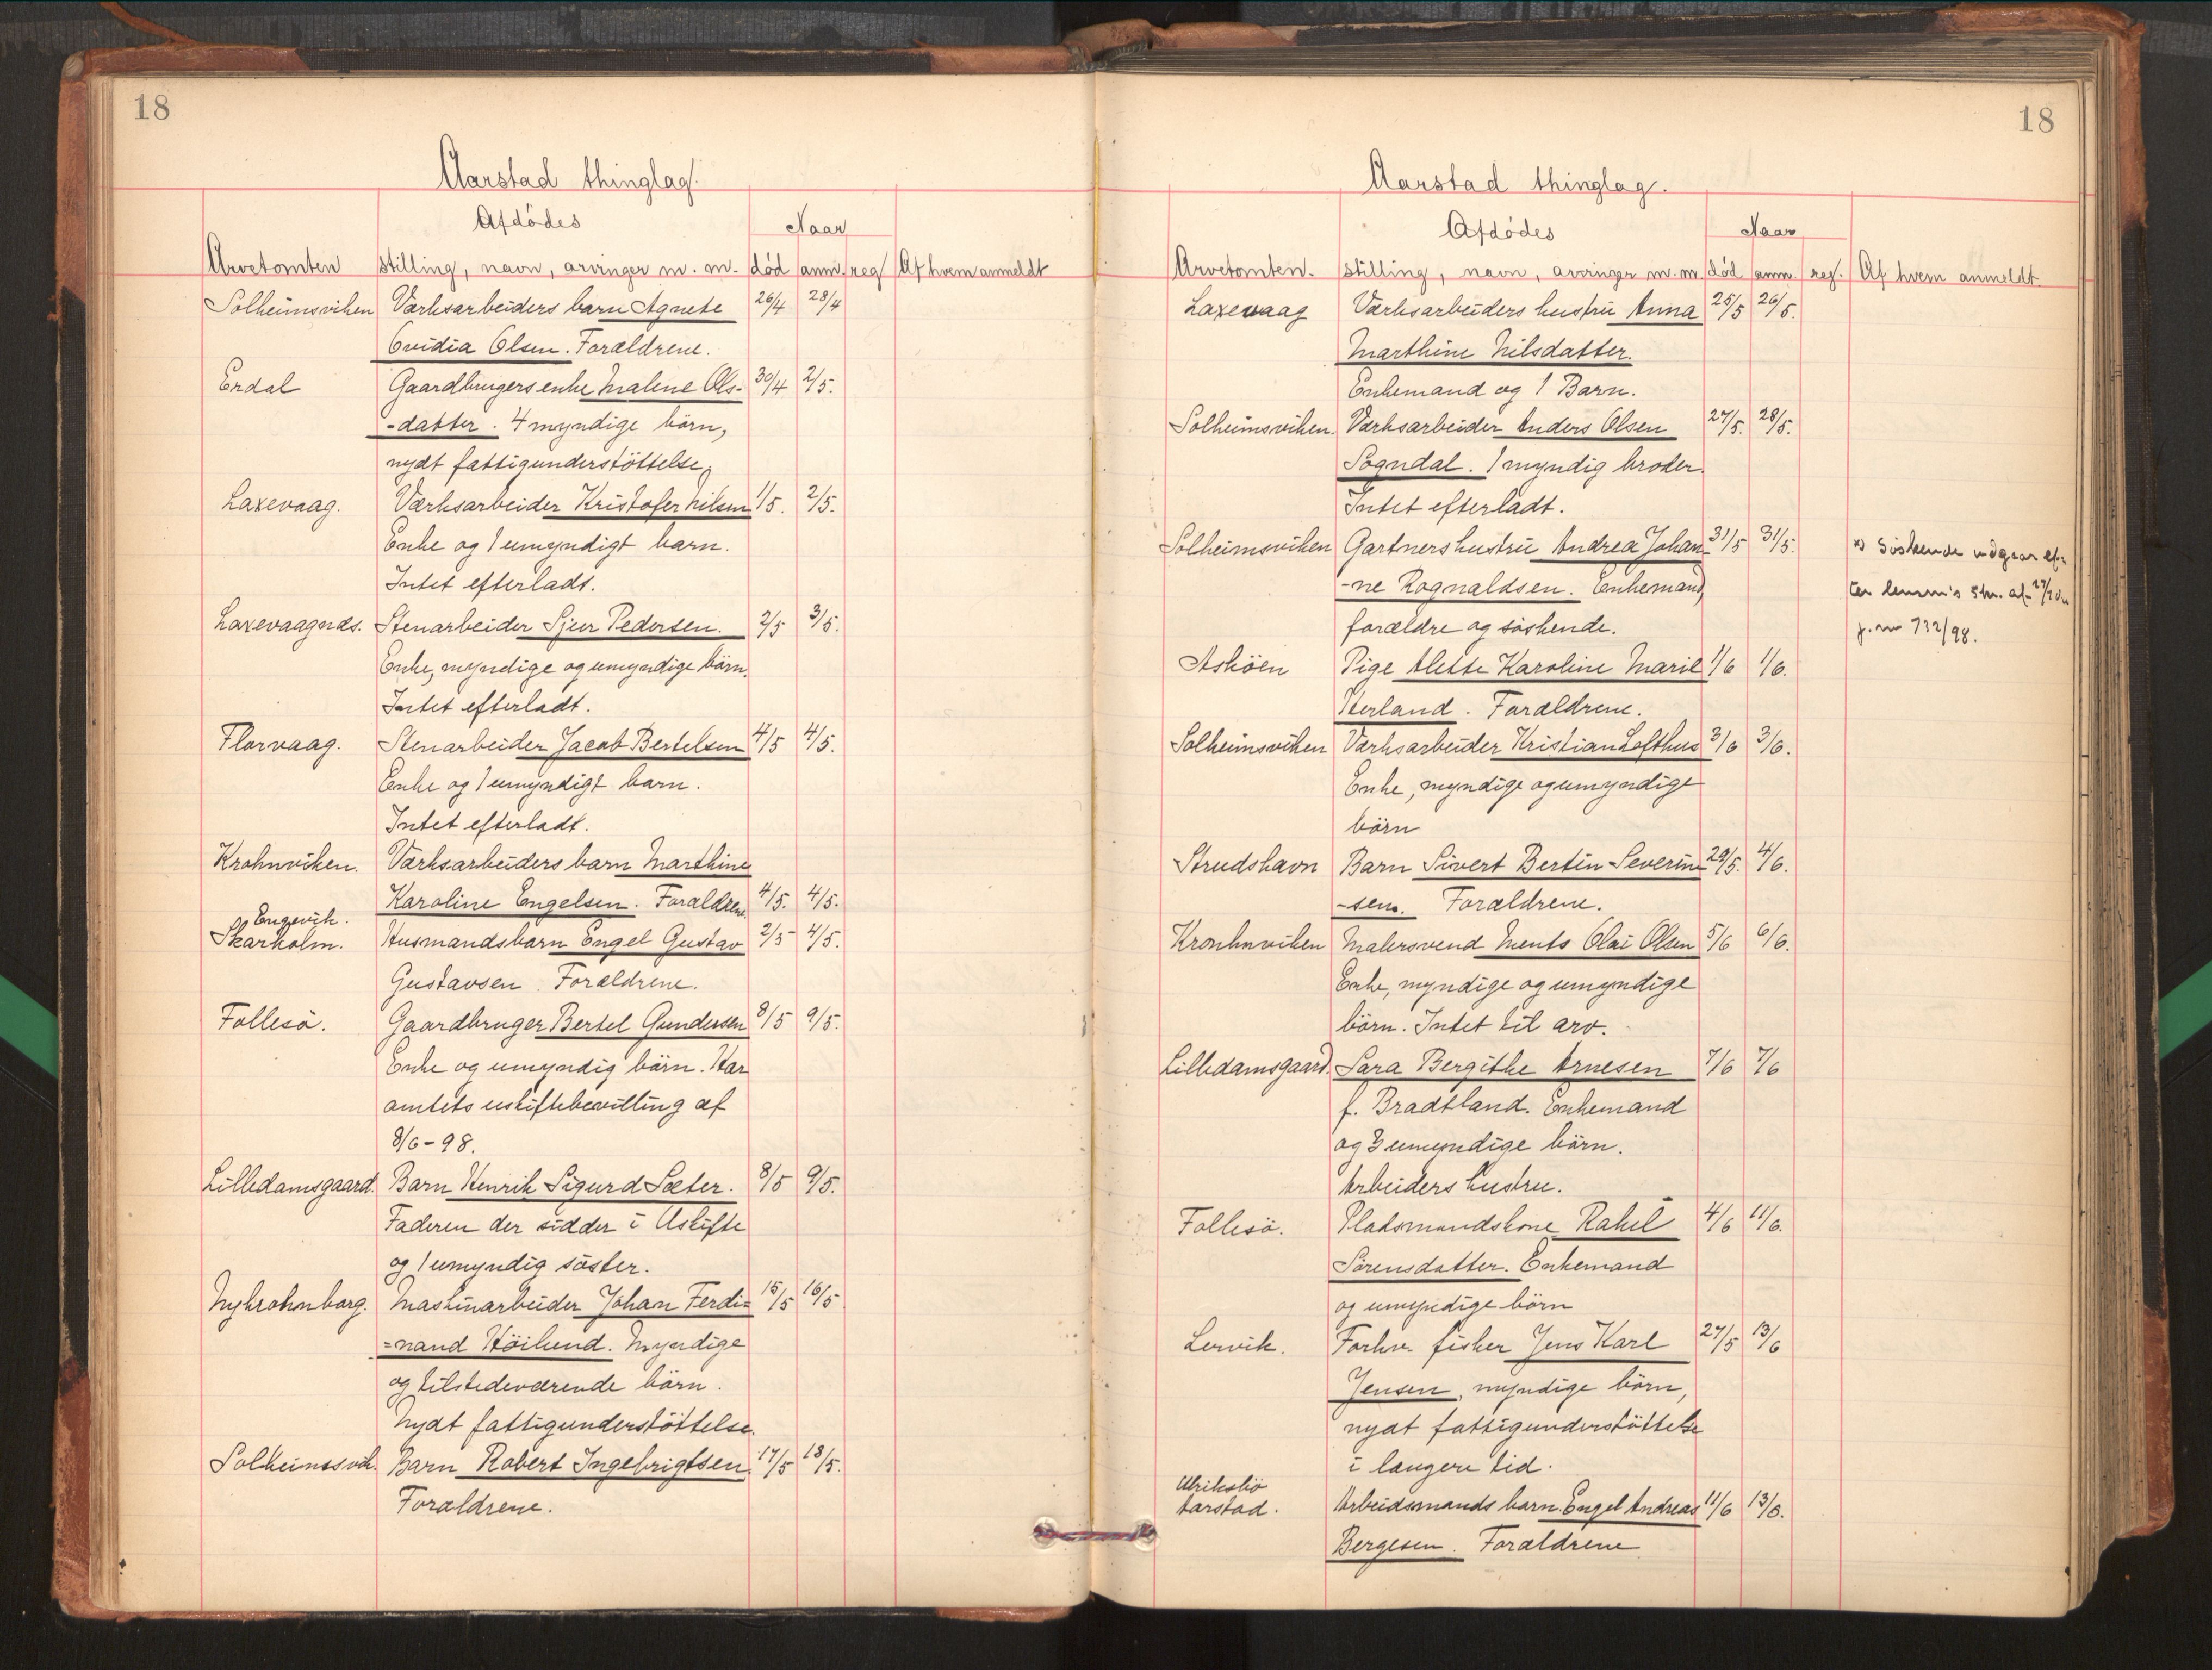 18
Aarstad thinglag.
Afdödes
Naar
Arvetomten stilling, navn, arvinger m. m. död anm. reg Af hvem anmeldt
Solheimsviken Værksarbeiders barn Agnete 26/4 28/4
Ovidia Olsen. Forældrene.
Erdal Gaardbrugersenke Malene Ols- 30/4 2/5.
-datter. 4 myndige börn,
nydt fattigunderstöttelse,
Laxevaag. Værksarbeider Kristofer Nilsen 1/5. 2/5.
Enke og 1 umyndigt barn.
Intet efterladt.
Laxevaagnæs. Stenarbeider Sjur Pedersen. 2/5 3/5.
Enke, myndige og umyndige börn.
Intet efterladt.
Florvaag. Stenarbeider Jacob Bertelsen 4/5 4/5.
Enke og 1 umyndigt barn.
Intet efterladt.
Krohnviken. Værksarbeiders barn Marthine
Karoline Engelsen. Forældrene 4/5. 4/5.
Engevik.
Skarholm. Husmandsbarn Engel Gustav 2/5 4/5.
Gustavsen. Forældrene.
Follesö. Gaardbruger Bertel Gundersen 8/5 9/5.
Enke og umyndig börn. Har
amtets uskiftebevilling af
8/6-98.
Lilledamsgaard. Barn Henrik Sigurd Sæter. 8/5 9/5.
Faderen der sidder i Uskifte
og 1 umyndig söster.
Nykrohnborg. Maskinarbeider Johan Ferdi= 15/5 16/5
=nand Höilund. Myndige
og tilstedeværende börn.
Nydt fattigunderstöttelse.
Solheimssvik. Barn Robert Ingebrigtsen. 17/5 18/5.
Forældrene.
18
Aarstad thinglag.
Afdödes
Naar
Arvetomten. stilling, navn, arvinger m. m. död anm. reg. Af hvem anmeldt.
Laxevaag Værksarbeiders hustru Anna 25/5 26/5.
Marthine Nilsdatter.
Enkemand og 1 Barn.
Solheimsviken. Værksarbeider Anders Olsen 27/5. 28/5.
Sogndal. 1 myndig broder.
Intet efterladt.
Solheimsviken Gartnershustru Andrea Johan- 31/5 31/5. x) Söskende udgaar ef-
-ne Rognaldsen. Enkemand, ter lensm's skr. af 27/10
forældre og söskende. j. no 732/98.
Asköen Pige Alette Karoline Marie 1/6 1/6.
Herland. Forældrene.
Solheimsviken Værksarbeider Kristian Lofthus 3/6 3/6.
Enke, myndige og umyndige
börn
Strudshavn Barn Sivert Bertin Severin- 29/5. 4/6.
-sen. Forældrene.
Kronhnviken Malersvend Ments Olai Olsen 5/6 6/6.
Enke, myndige og umyndige
börn. Intet til arv.
Lilledamsgaard. Sara Bergithe Arnesen 7/6 7/6
f. Bradtland. Enkemand
og 3 umyndige börn.
Arbeiders hustru.
Follesö. Pladsmandskone Rakel 4/6 11/6.
Sörensdatter. Enkemand
og umyndige börn
Lervik. Forhv. fisker Jens Karl 27/5 13/6
Jensen, myndige börn,
nydt fattigunderstöttelse
i længere tid.
Ulriksbö
Aarstad. Arbeidsmands barn Engel Andreas 11/6 13/6.
Bergesen. Forældrene